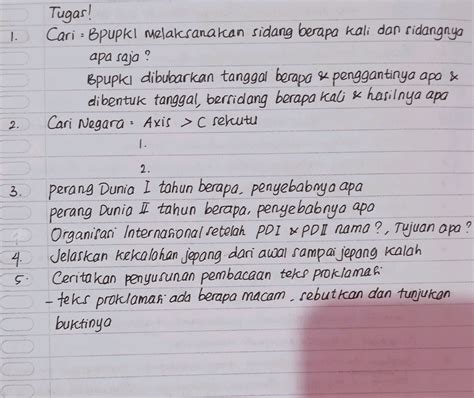 Tugas!
1. Cari : BPUPKI melaksanakan sidang berapa kali dan sidangnya
apa saja ?
BPUPKI dibubarkan tanggal berapa & penggantinya apa &
dibentuk tanggal, bersidang berapa kali & hasilnya apa
2. Cari Negara : Axis > C sekutu
1.
2.
3. perang Dunia I tahun berapa, penyebabnya apa
perang Dunia II tahun berapa, penyebabnya apa
Organisasi Internasional setelah PD I & PD II nama ?, Tujuan apa ?
4. Jelaskan kekalahan jepang dari awal sampai jepang kalah
5. Ceritakan penyusunan pembacaan teks proklamasi
- teks proklamasi ada berapa macam, sebutkan dan tunjukan
buktinya